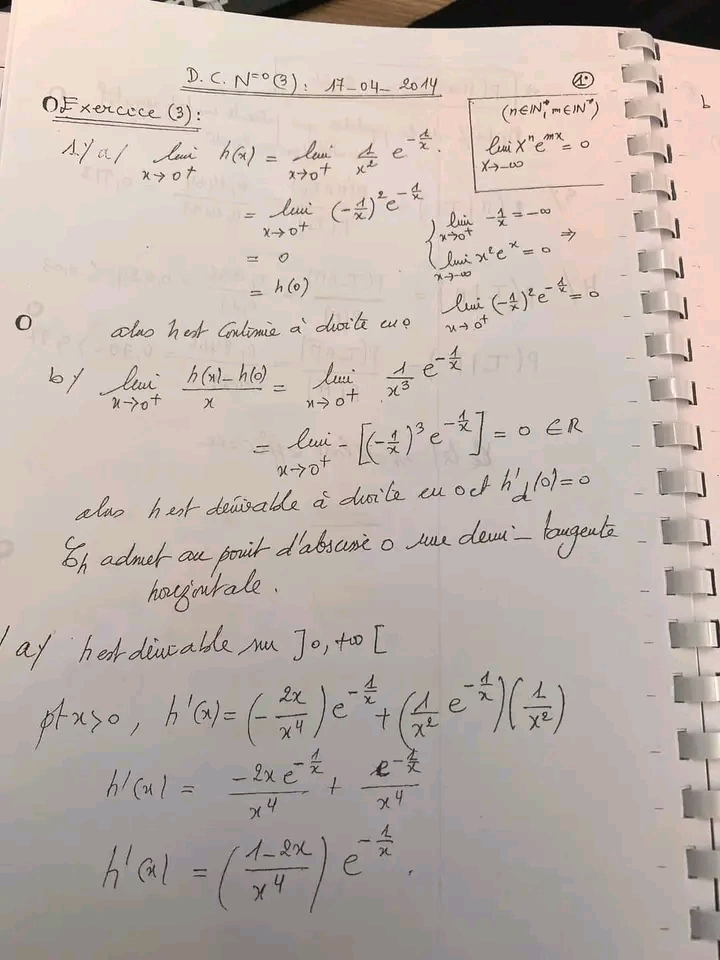 D.C. N=°(3): 17-04-2014
1°
Exercice (3):
(n∈IN*, m∈IN*)
lim x^n e^{mx} = 0
x→-∞
1/ a/ lim h(x) = lim 1/x² e^{-1/x}.
x→0+ x→0+
= lim (-1/x)² e^{-1/x}
x→0+
= 0
= h(0)
{ lim -1/x = -∞
x→0+
lim x² e^x = 0 ⇒
x→-∞
lim (-1/x)² e^{-1/x} = 0
x→0+
alors h est continue à droite en 0
b/ lim (h(x)-h(0))/x = lim 1/x³ e^{-1/x}
x→0+ x→0+
= lim -[(-1/x)³ e^{-1/x}] = 0 ∈ IR
x→0+
alors h est dérivable à droite en 0 et h'd(0) = 0
ζh admet au point d'abscisse 0 une demi-tangente
horizontale.
/ a/ h est dérivable sur ]0, +∞[
pt x>0, h'(x) = (-2x/x⁴) e^{-1/x} + (1/x² e^{-1/x})(1/x²)
h'(x) = -2x e^{-1/x}/x⁴ + e^{-1/x}/x⁴
h'(x) = ((1-2x)/x⁴) e^{-1/x}.